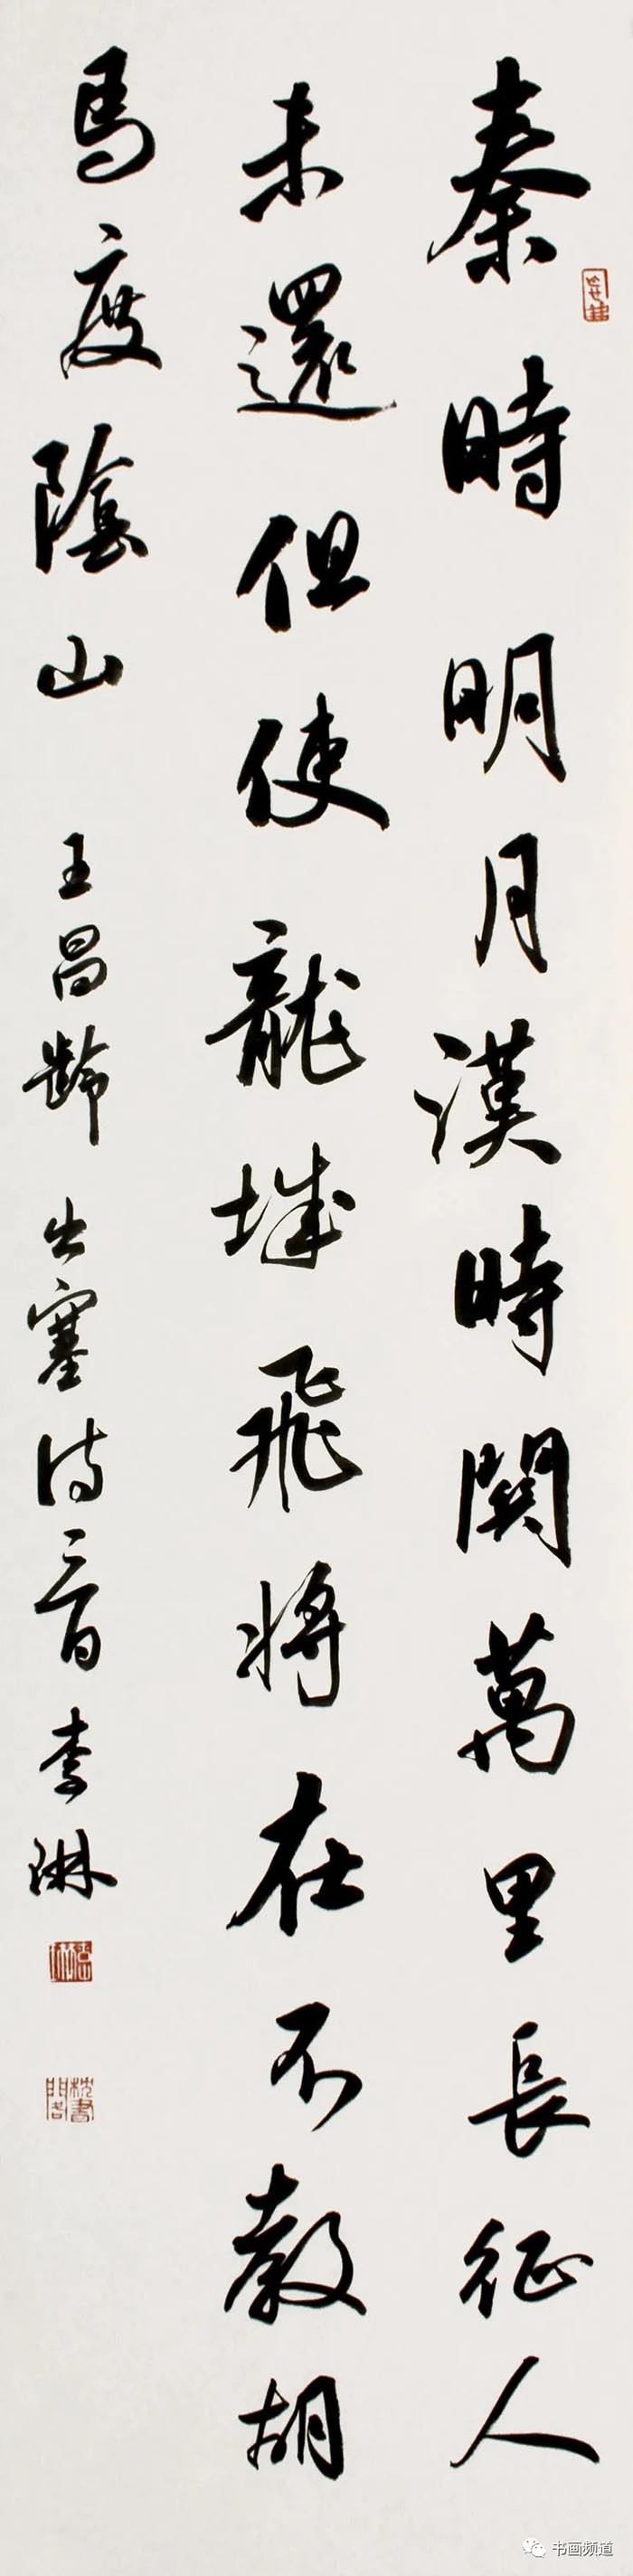 秦時明月漢時關萬里長征人
未還但使龍城飛將在不教胡
馬度陰山 王昌齡 出塞詩一首 李琳
书画频道